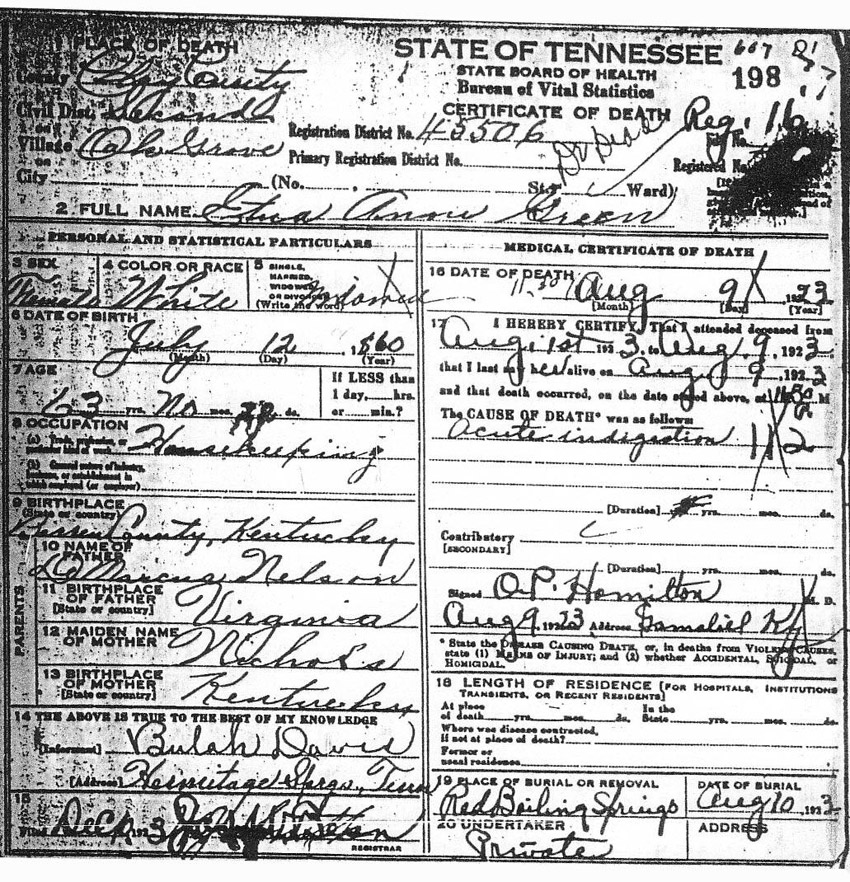 STATE OF TENNESSEE 607
STATE BOARD OF HEALTH
Bureau of Vital Statistics
198
CERTIFICATE OF DEATH
Reg. 116
1 PLACE OF DEATH
County Clay County
Civil Dist. Second
or
Village Oak Grove
or
City
Registration District No. 45506
Primary Registration District No.
File No.
Registered No.
(No. St.; Ward)
2. FULL NAME Etna Annie Green
PERSONAL AND STATISTICAL PARTICULARS
3 SEX
Female
4 COLOR OR RACE
White
5 SINGLE,
MARRIED,
WIDOWED
OR DIVORCED
(Write the word) Widowed
6 DATE OF BIRTH
July 12, 1860
(Month) (Day) (Year)
7 AGE
63 yrs. No mos. ds.
If LESS than
1 day, hrs.
or min.?
8 OCCUPATION
(a) Trade, profession, or
particular kind of work Housekeeping
(b) General nature of industry,
business, or establishment in
which employed (or employer)
9 BIRTHPLACE
(State or country)
Barren County, Kentucky
PARENTS
10 NAME OF
FATHER
Marcus Nelson
11 BIRTHPLACE
OF FATHER
[State or country] Virginia
12 MAIDEN NAME
OF MOTHER Nichols
13 BIRTHPLACE
OF MOTHER
[State or country] Kentucky
14 THE ABOVE IS TRUE TO THE BEST OF MY KNOWLEDGE
[Informant] Bulah Davis
[Address] Hermitage Sprgs, Tenn
15
Filed 1923
REGISTRAR
MEDICAL CERTIFICATE OF DEATH
16 DATE OF DEATH
Aug 9 1923
[Month] [Day] [Year]
17 I HEREBY CERTIFY, That I attended deceased from
Aug 1st 1923, to Aug. 9, 1923
that I last saw her alive on Aug 9, 1923
and that death occurred, on the date stated above, at M
The CAUSE OF DEATH* was as follows:
Acute indigestion 112
[Duration] yrs. mos. ds.
Contributory
[SECONDARY]
[Duration] yrs. mos. ds.
Signed O.P. Hamilton M. D.
Aug 9, 1923 Address Gamaliel Ky
* State the DISEASE CAUSING DEATH, or, in deaths from VIOLENT CAUSES,
state (1) MEANS OF INJURY; and (2) whether ACCIDENTAL, SUICIDAL, or
HOMICIDAL.
18 LENGTH OF RESIDENCE [FOR HOSPITALS, INSTITUTIONS
TRANSIENTS, OR RECENT RESIDENTS]
At place In the
of death yrs. mos. ds. State yrs. mos. ds.
Where was disease contracted,
if not at place of death?
Former or
usual residence
19 PLACE OF BURIAL OR REMOVAL
Red Boiling Springs
DATE OF BURIAL
Aug 10, 1923
20 UNDERTAKER
Private
ADDRESS